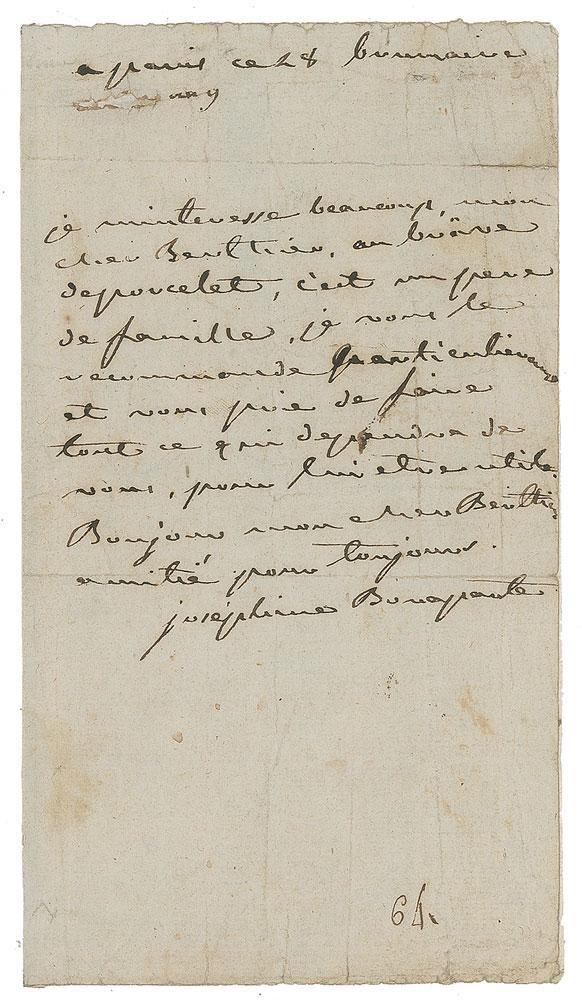 a paris ce 28 brumaire
an 9
je minteresse beaucoup, mon
cher Berthier, au brave
deporcelet, c'est un pere
de famille, je vous le
recommande particulierement
et vous prie de faire
tout ce qui dependra de
vous, pour lui etre utile.
Bonjour mon cher Berthier
amitié pour toujours.
joséphine Bonaparte
64.